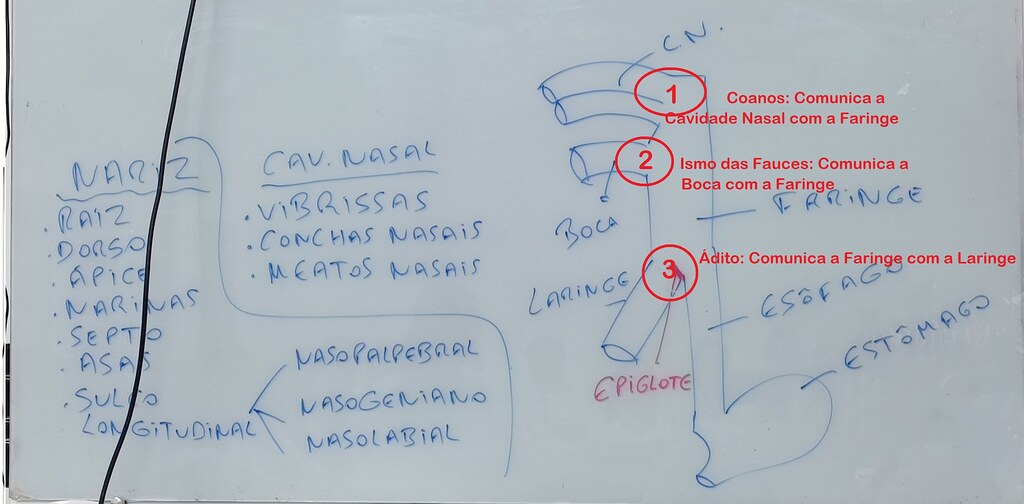 NARIZ
. RAIZ
. DORSO
. ÁPICE
. NARINAS
. SEPTO
. ASAS
. SULCO
LONGITUDINAL
NASOPALPEBRAL
NASOGENIANO
NASOLABIAL
CAV. NASAL
. VIBRISSAS
. CONCHAS NASAIS
. MEATOS NASAIS
C.N.
1
Coanos: Comunica a
Cavidade Nasal com a Faringe
2
Ismo das Fauces: Comunica a
Boca com a Faringe
BOCA
FARINGE
3
Ádito: Comunica a Faringe com a Laringe
LARINGE
ESÔFAGO
ESTÔMAGO
EPIGLOTE